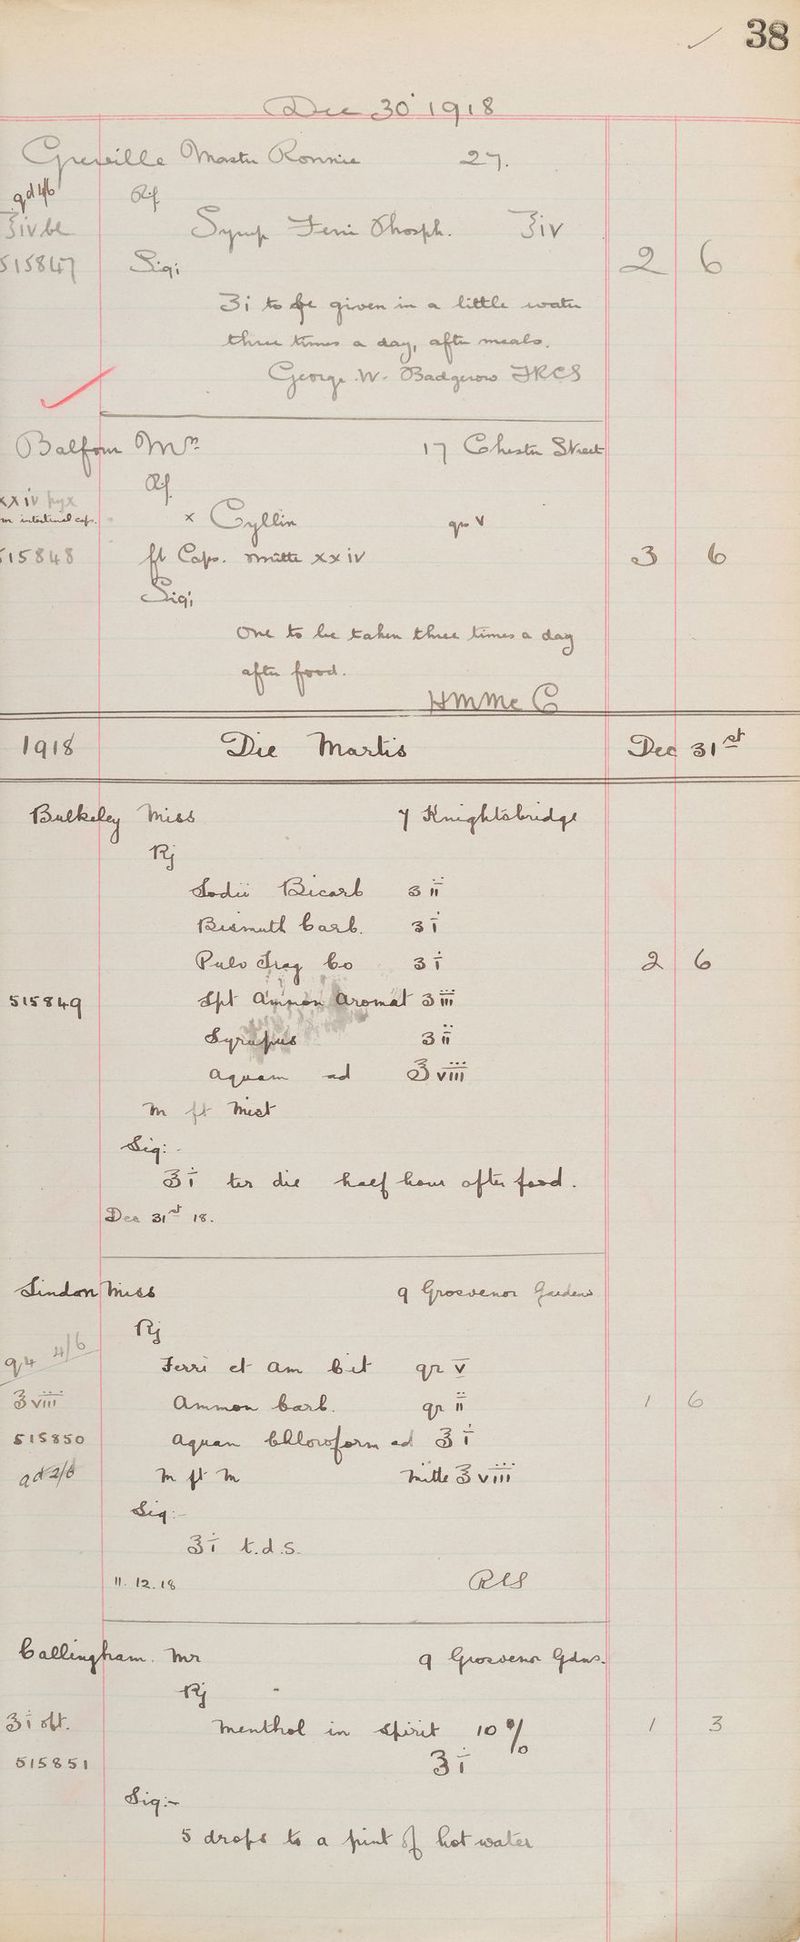 38
Dec 30 1918
Greville Master Ronnie 27.
qd 4/6 Rx
℥iv bl Syrup Ferri Phosph. ℥iv
515847 Sig; 2 6
ʒi to be given in a little water
three times a day, after meals.
George. W. Badgerow FRCS
Balfour Mrs 17 Chester Street
Rx
xxiv
intestinal caps. x Cyllin grs V
515848 ft Caps. mitte xxiv 3 6
Sig;
One to be taken three times a day
after food.
HMMc C
1918 Die Martis Dec 31st
Bulkeley Miss 7 Knightsbridge
Rx
Sodii Bicarb ʒii
Bismuth Carb. ʒi
Pulv Trag Co ʒi 2 6
515849 Spt Ammon Aromat ʒiii
Syrupus ʒii
Aquam ad ℥viii
m ft mist
Sig:-
℥i ter die half hour after food.
Dec 31st 18.
Lindon Miss 9 Grosvenor Gardens
Rx
q4 4/6 Ferri et Am Cit gr v
℥viii Ammon Carb. gr ii 1 6
515850 Aquam Chloroform ad ℥i
qd 2/6 m ft m mitte ℥viii
Sig:-
℥i t.d.s.
11.12.18
Callingham. Mr 9 Grosvenor Gdns.
Rx
℥i Menthol in spirit 10 % 1 3
515851 ℥i
Sig:-
5 drops to a pint of hot water